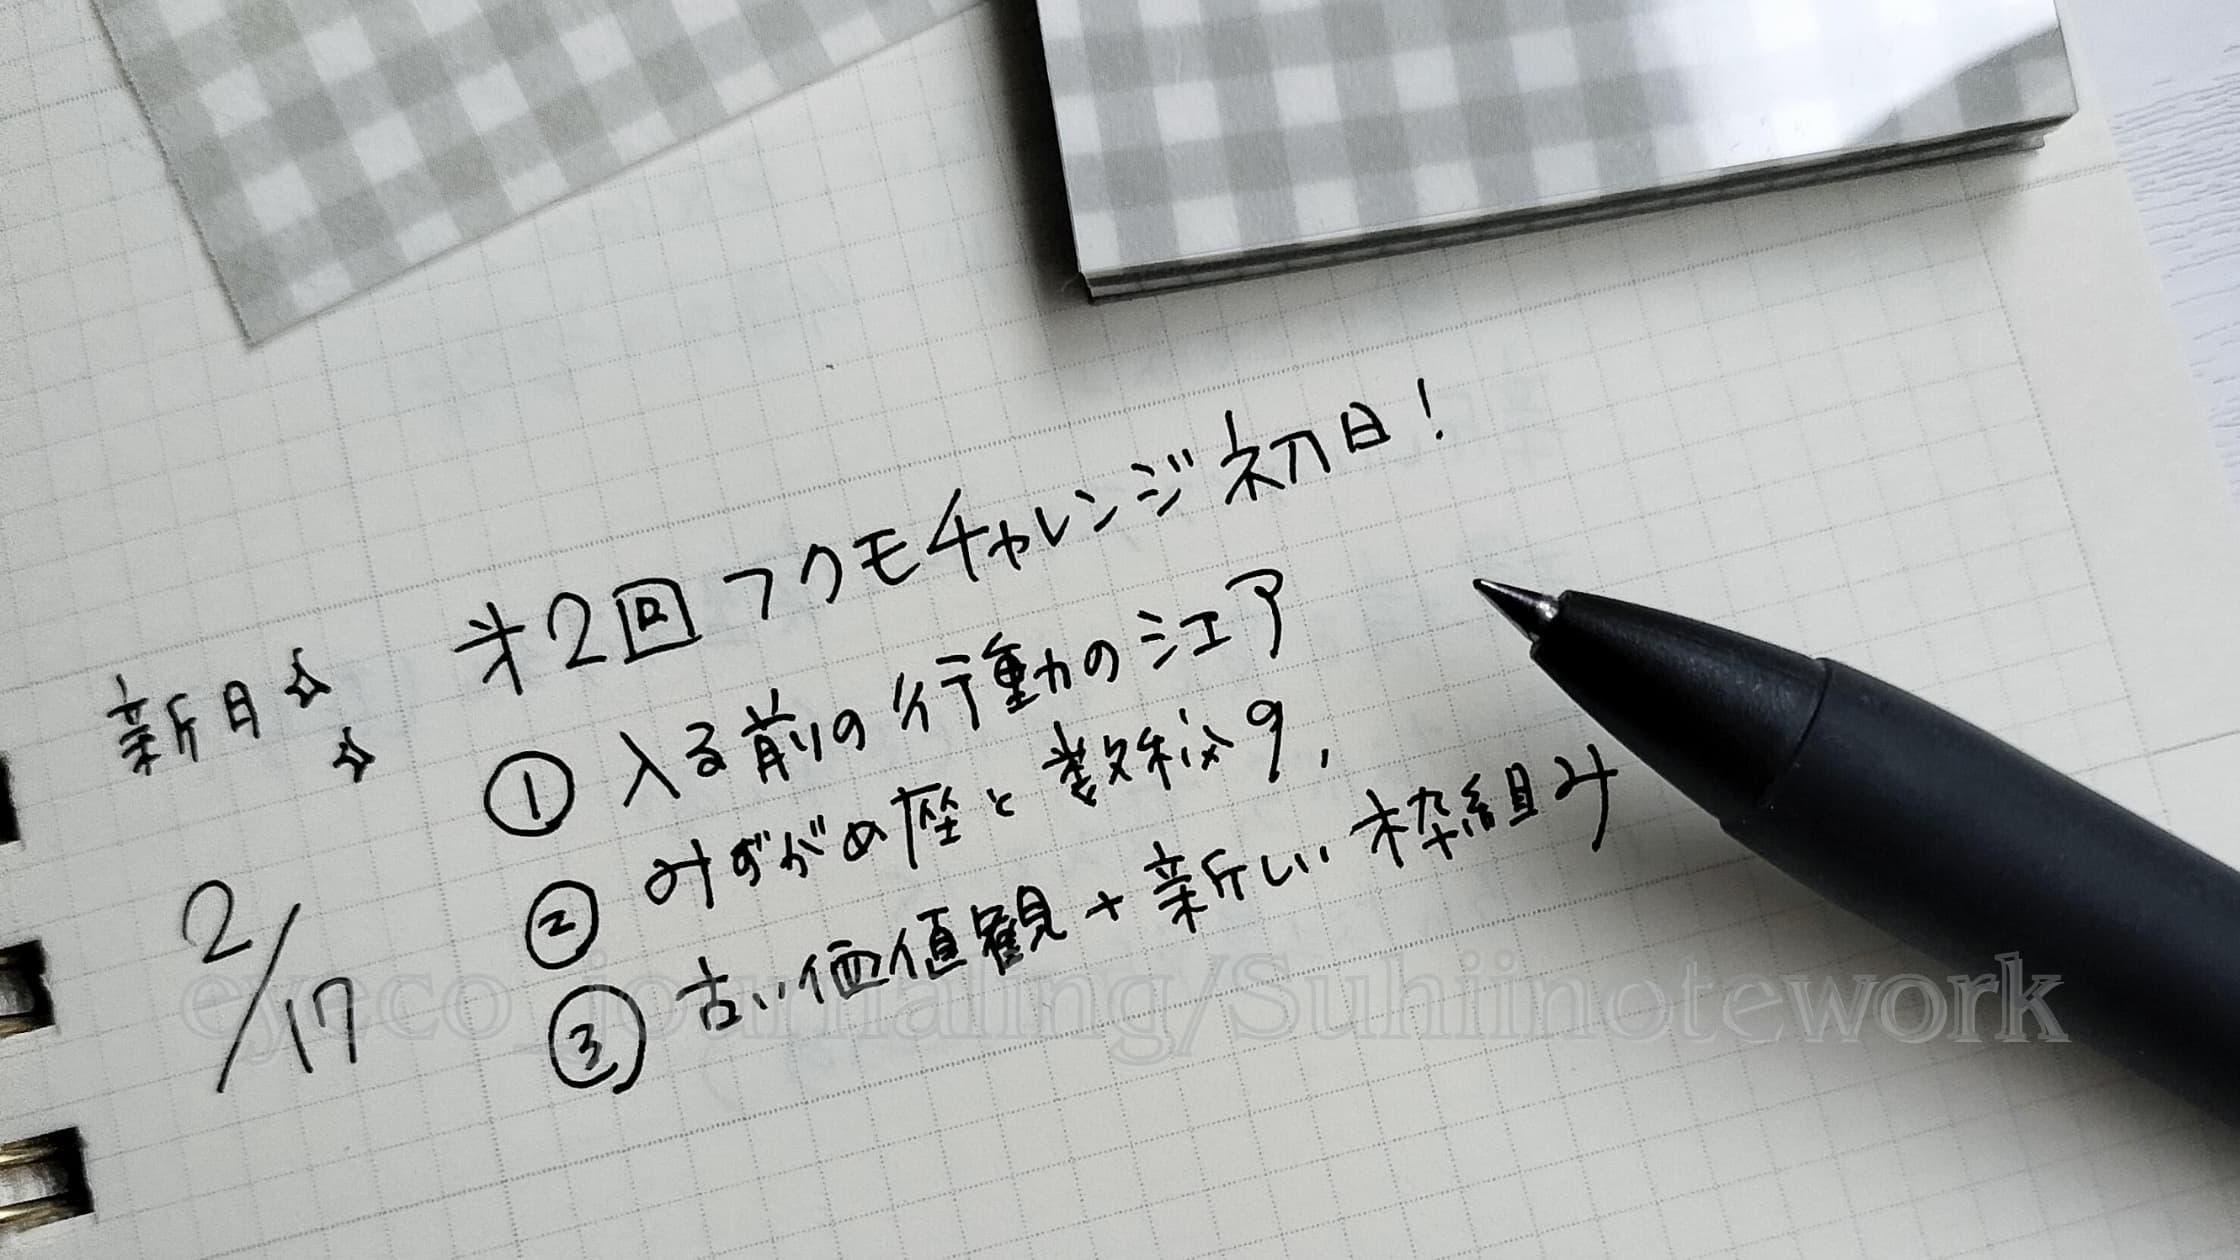 新月☆☆
2/17
第2回フクモチャレンジ初日!
① 入る前の行動のシェア
② みずがめ座と数秘9,
③ 古い価値観+新しい枠組み
eyeco_journaling/Suhiinotework